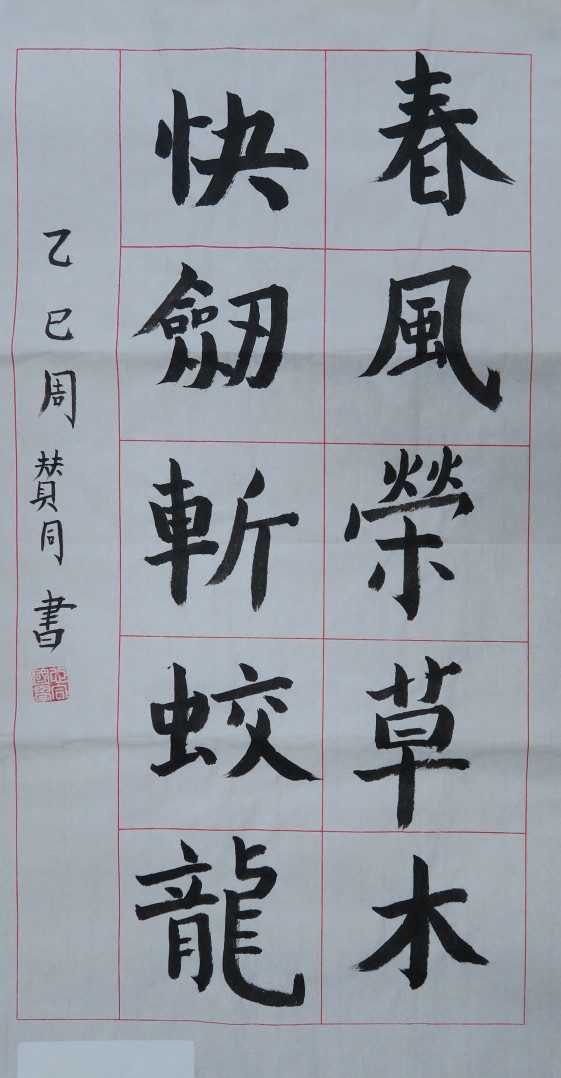 春風榮草木
快劒斬蛟龍
乙巳周贊同書